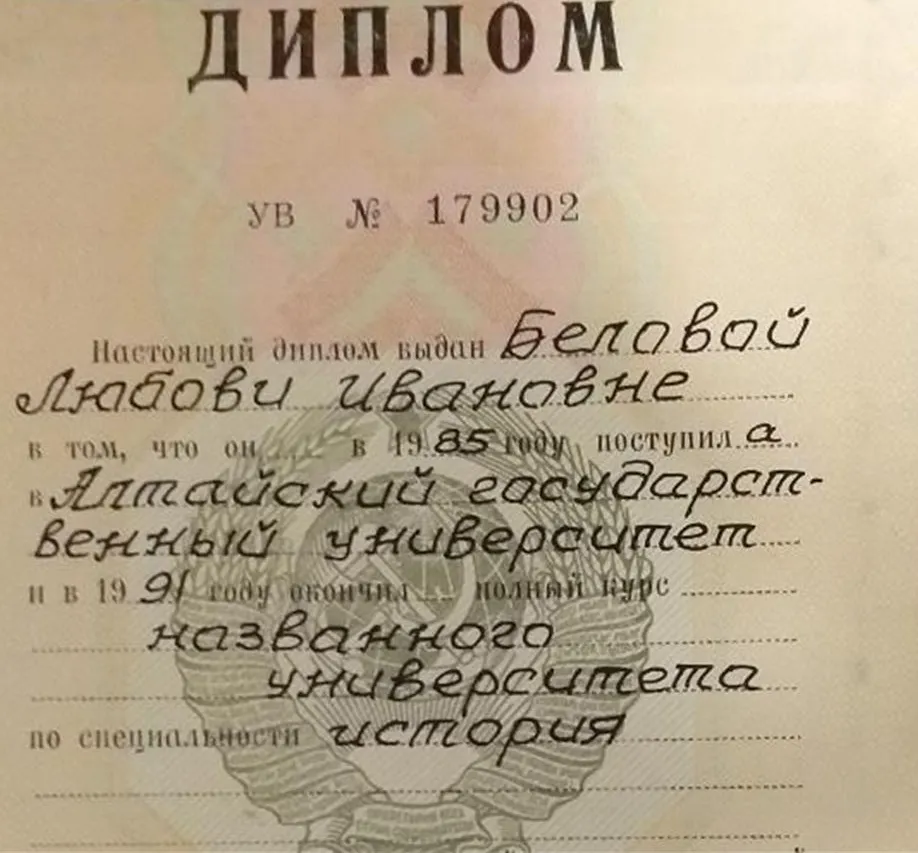 ДИПЛОМ
УВ № 179902
Настоящий диплом выдан Беловой
Любови Ивановне
в том, что он в 1985 году поступила
в Алтайский государст-
венный университет
и в 1991 году окончил полный курс
названного
университета
по специальности история